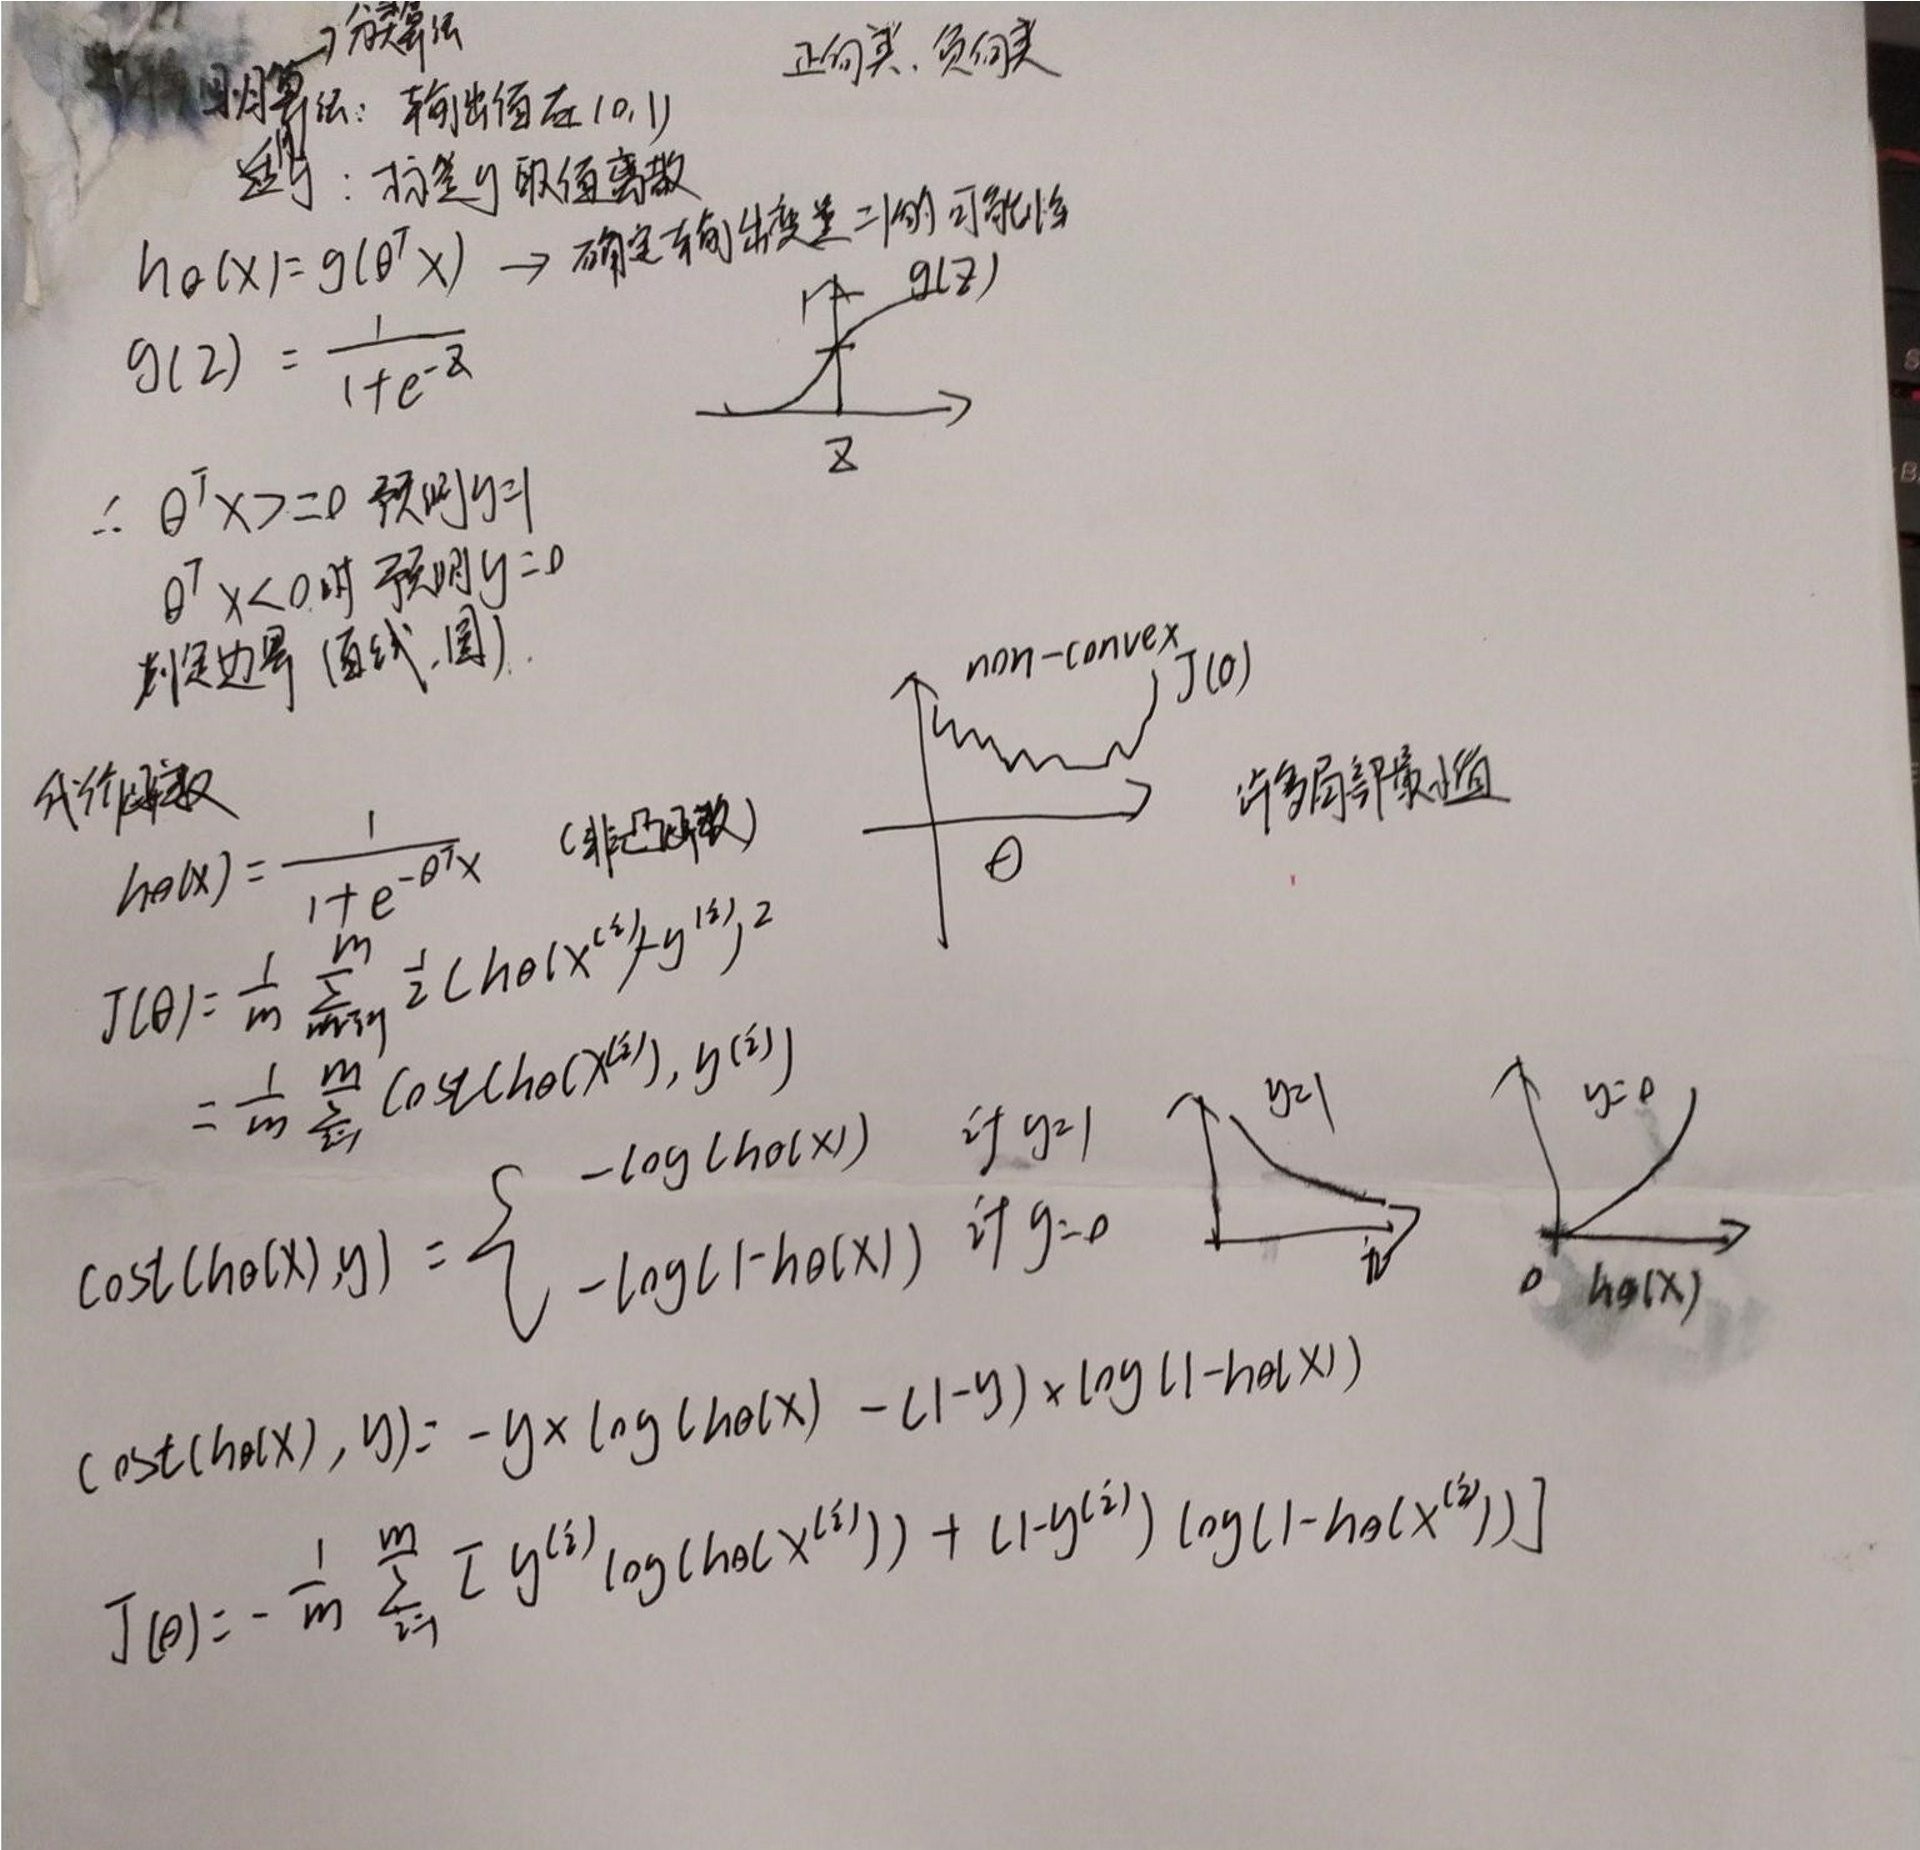 →分类算法
正向类、负向类
回归算法：输出值在(0,1)
适用：标签y取值离散
hθ(x)=g(θᵀx) → 确定输出变量=1的可能性
g(z) = 1/(1+e^-z)
1 g(z)
z
∴ θᵀx>=0 预测y=1
θᵀx<0时 预测y=0
判定边界(直线、圆).
non-convex J(θ)
θ
许多局部最小值
代价函数
hθ(x)= 1/(1+e^-θᵀx) (非凸函数)
J(θ)= 1/m Σ^m 1/2 (hθ(x^(i))-y^(i))^2
= 1/m Σ_{i=1}^m Cost(hθ(x^(i)), y^(i))
cost(hθ(x),y) = { -log(hθ(x)) if y=1
-log(1-hθ(x)) if y=0
y=1
y=0
0 hθ(x)
cost(hθ(x), y)= -y× log(hθ(x) -(1-y)×log(1-hθ(x))
J(θ)= - 1/m Σ_{i=1}^m [ y^(i) log(hθ(x^(i))) + (1-y^(i)) log(1-hθ(x^(i))) ]